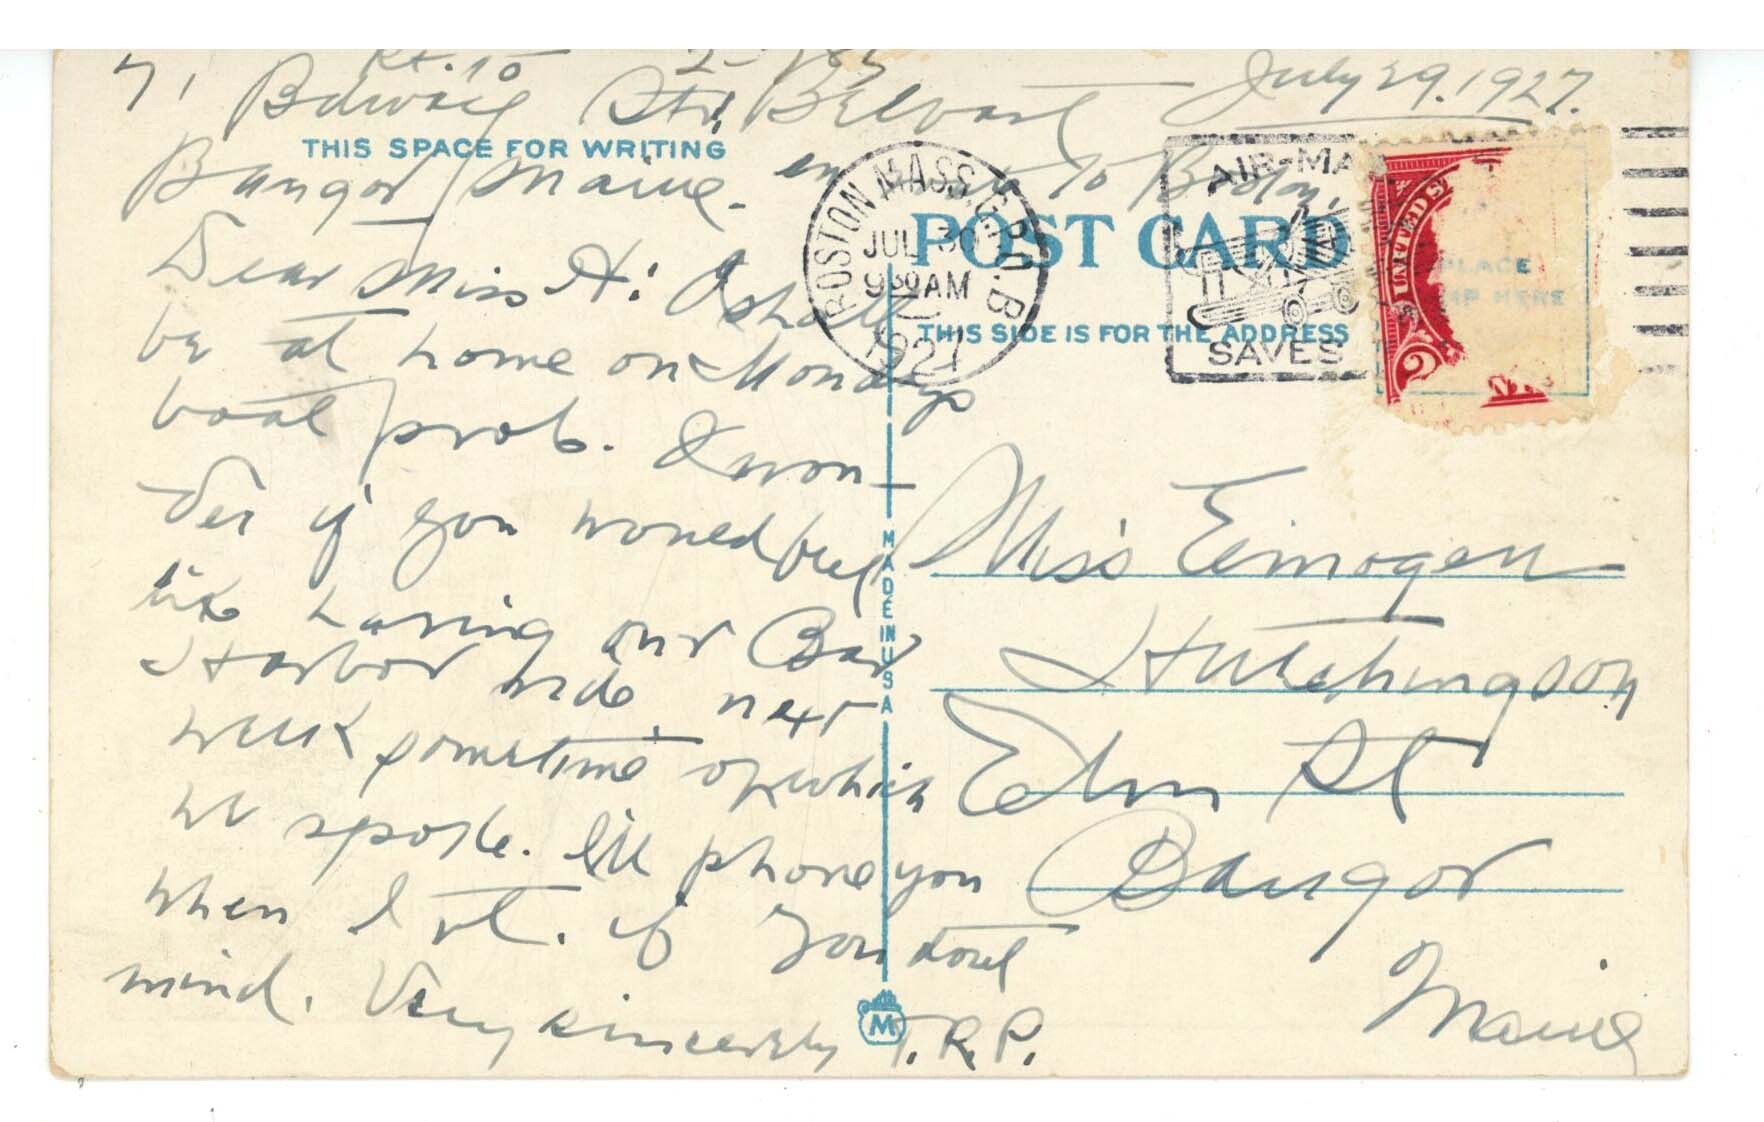 71 Rt. 15
Bdway Str. Belfast July 29. 1927.
THIS SPACE FOR WRITING
Bangor Maine. to Boston,
Dear Miss H: I shall
be at home on Mondays
boat prob. I won-
der if you would
like having our Bar
Harbor ride next
week sometime of which
we spoke. I'll phone you
when I rt. if you dont
mind. Very sincerely T.R.P.
BOSTON MASS. G.P.O. B
JUL 30
9 30 AM
1927
AIR-MA
SAVES
UNITED S
2
PLACE
MP HERE
POST CARD
THIS SIDE IS FOR THE ADDRESS
MADE IN U S A
M
Miss Eimogen
Hutchingson
Elm St
Bangor
Maine